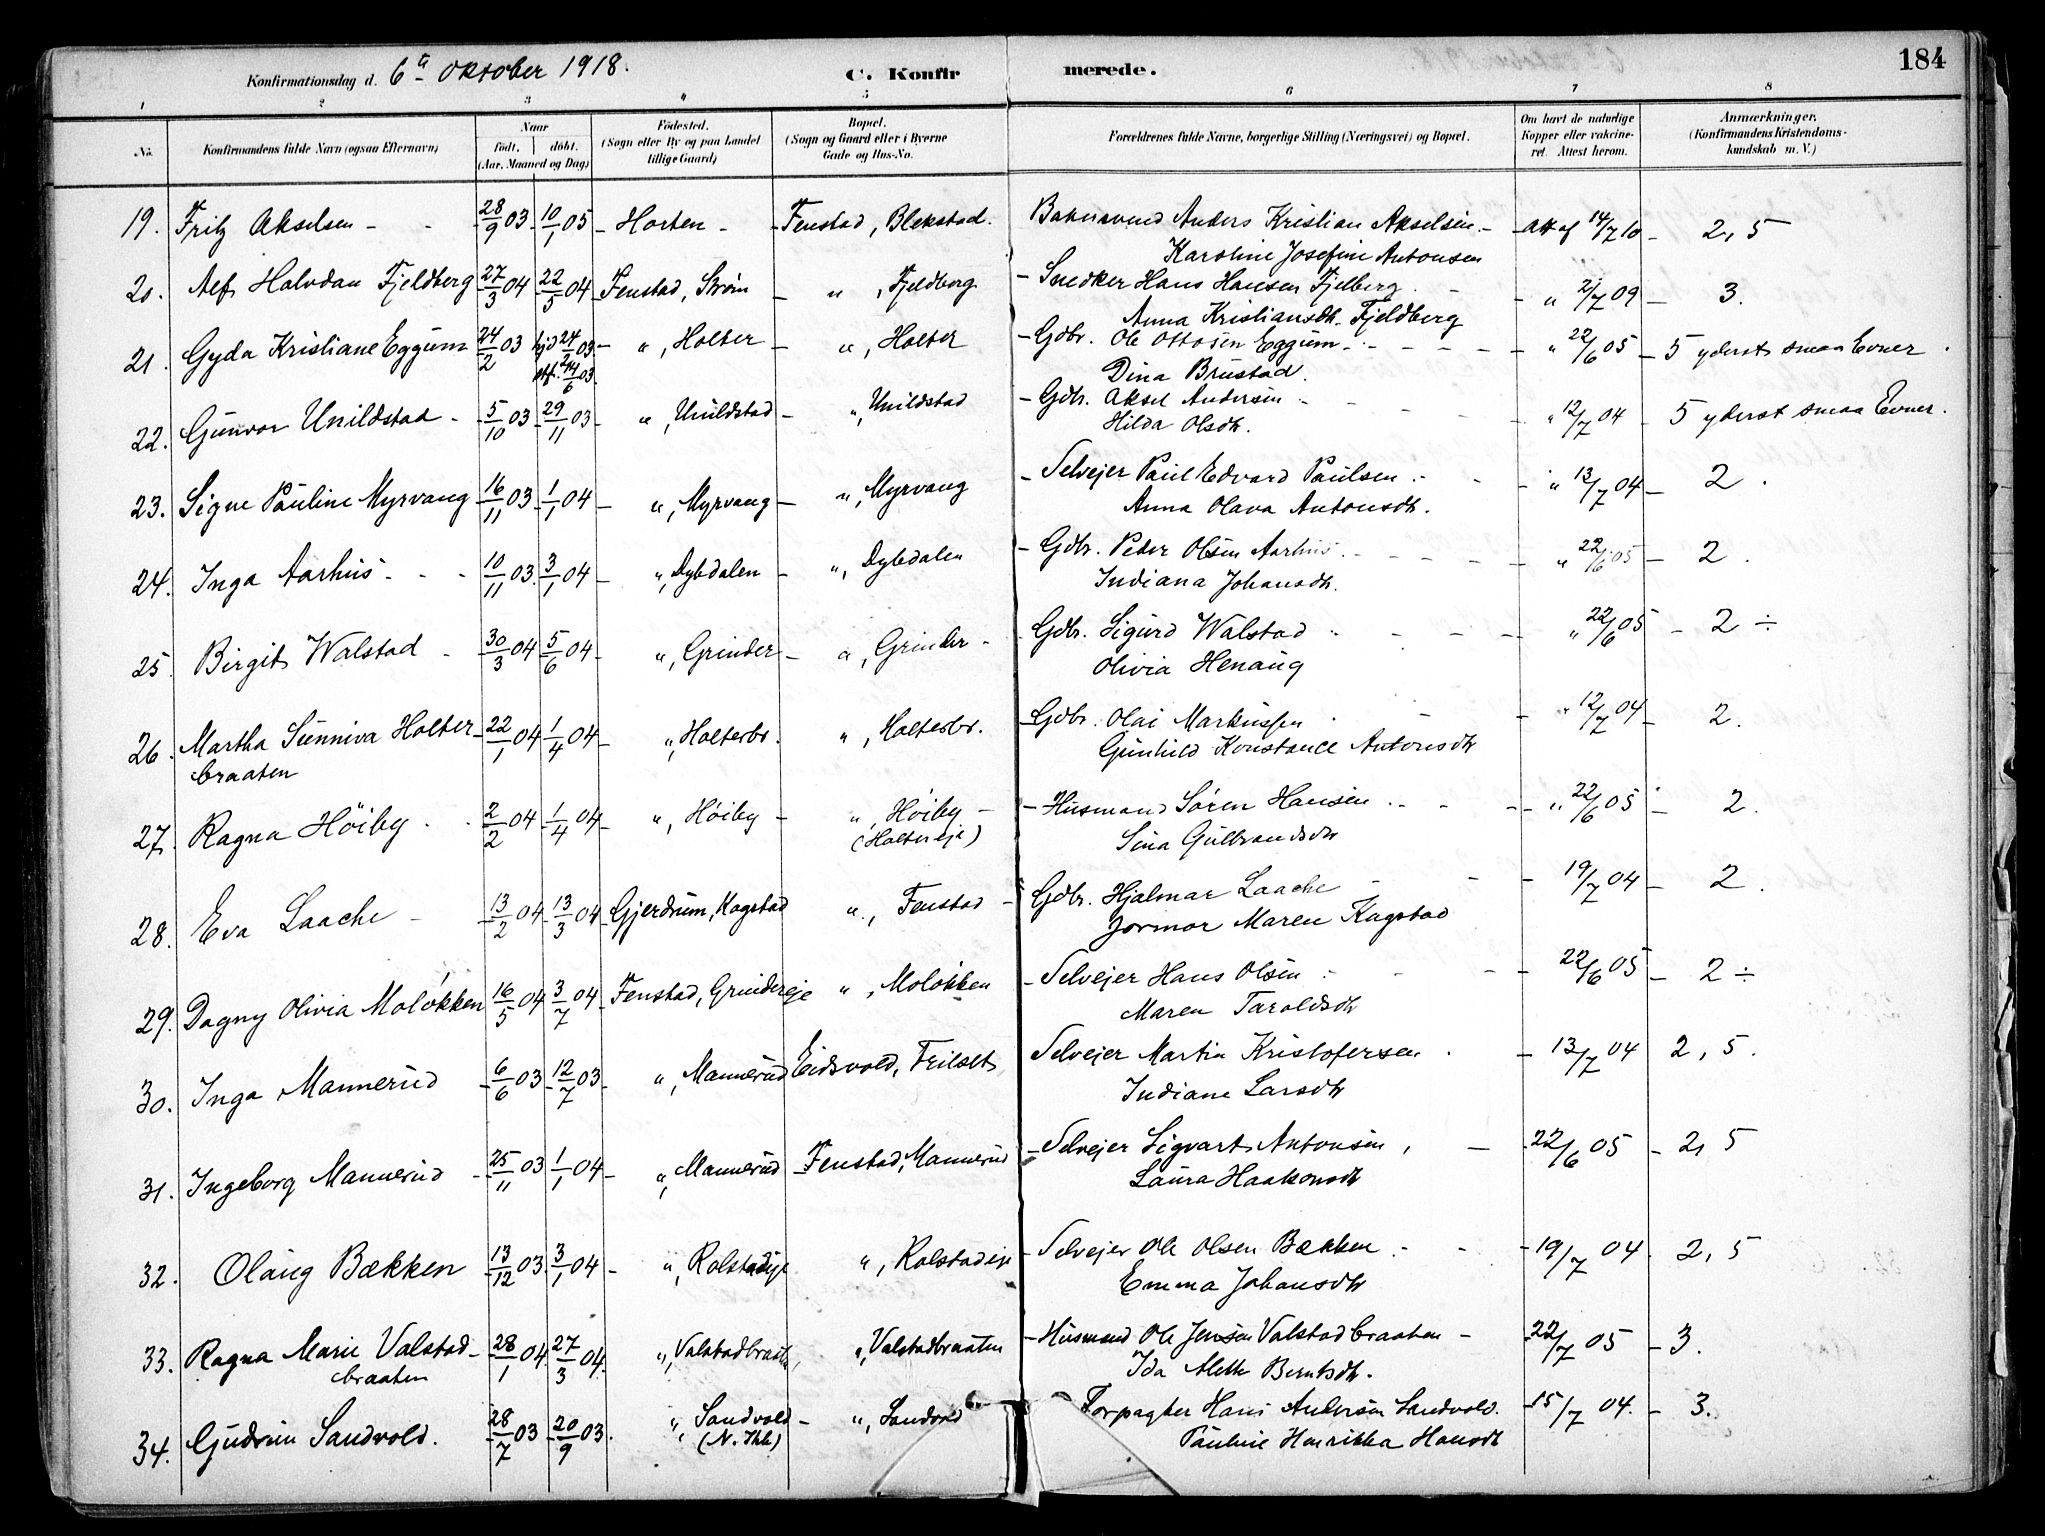 184
Konfirmationsdag d. 6te Oktober 1918. C. Konfirmerede.
1 2 3 4 5 6 7 8
No. Konfirmandens fulde Navn (ogsaa Efternavn) Naar født. døbt. (Aar, Maaned og Dag) Fødested. (Sogn eller By og paa Landet tillige Gaard) Bopæl. (Sogn og Gaard eller i Byerne Gade og Hus-No. Forældrenes fulde Navne, borgerlige Stilling (Næringsvei) og Bopæl. Om havt de naturlige Kopper eller vakcineret. Attest herom. Anmærkninger. (Konfirmandens Kristendomskundskab m. V.)
19. Fritz Akselsen - - 28/9 03 10/1 05 Horten - Fenstad, Blekstad. Anders Kristian Akselsen - Att af 14/7 10 - 2, 5
Karoline Josefine Antonsen
20. Alf Halvdan Fjeldberg 27/3 04 22/5 04 Fenstad, Strøm - " , Fjeldberg - Snedker Hans Hansen Fjelberg. - " 2/7 09 - 3.
Anna Kristiansdtr. Fjeldberg
21. Gyda Kristiane Eggum 24/2 03 hjd 24/2 03 - " , Holter - " , Holter - Gdbr. Ole Ottosen Eggum - " 22/6 05 - 5 yderst smaa Evner.
6 03. Dina Brustad.
22. Gunvor Unildstad - 5/10 03 29/11 03 - " , Unildstad - " , Unildstad - Gdbr. Aksel Andersen - " 12/7 04 5 yderst smaa Evner.
Hilda Olsdtr.
23. Signe Pauline Myrvang 16/11 03 1/1 04 - " , Myrvang - " , Myrvang - Selvejer Paul Edvard Paulsen - " 13/7 04 - 2.
Anna Olava Antonsdtr.
24. Inga Aarhus - - - 10/11 03 3/1 04 - " , Dybdalen - " , Dybdalen - Gdbr. Peder Olsen Aarhus - " 22/6 05 - 2.
Indiana Johansdtr.
25. Birgit Walstad - 30/3 04 5/6 04 - " , Grinder - " , Grinder - Gdbr. Sigurd Walstad - " 22/6 05 - 2 ÷
Olivia Henaug
26. Martha Sunniva Holter- 22/1 04 1/4 04 - " , Holterbr. " , Holterbr. - Gdbr. Olai Markussen - " 12/7 04 - 2.
braaten Gunhild Konstance Antonsdtr
27. Ragna Höiby - 2/2 04 1/4 04 - " , Høiby - " , Høiby - - Husmand Søren Hansen - " 22/6 05 - 2.
(Holtereje) Sina Gulbrandsdtr
28. Eva Laache - 13/2 04 13/3 04 Gjerdrum, Kogstad " , Fenstad - Gdbr. Hjalmar Laache - - 19/7 04 - 2.
Maren Kogstad
29. Dagny Olivia Moløkken 16/5 04 3/7 04 Fenstad, Grindereje " , Moløkken - Selvejer Hans Olsen - 22/6 05 - 2 ÷
Maren Taraldsdtr
30. Inga Mannerud 6/6 03 12/7 03 - " , Mannerud Eidsvold, Frilset Selvejer Martin Kristofersen - 13/7 04 2, 5.
Indiane Larsdtr
31. Ingeborg Mannerud 25/11 03 1/1 04 - " , Mannerud Fenstad, Mannerud - Selvejer Sigvart Antonsen, - 22/6 05 - 2, 5
Laura Haakonsdtr
32. Olaug Bækken 13/12 03 3/1 04 - " , Rolstadeje " , Rolstadeje - Selvejer Ole Olsen Bækken - - 19/7 04 - 2, 5
Emma Johansdtr
33. Ragna Marie Valstad- 28/1 04 27/3 04. " , Valstadbraaten, " , Valstadbraaten - Husmand Ole Jensen Valstadbraaten - 22/7 05 - 3.
braaten Ida Alette Berntsdtr.
34. Gudrun Sandvold. 28/7 03 20/9 03. " , Sandvold - " , Sandvold Forpagter Hans Andersen Sandvold. - 15/7 04. - 3.
Pauline Henrikka Hansdtr